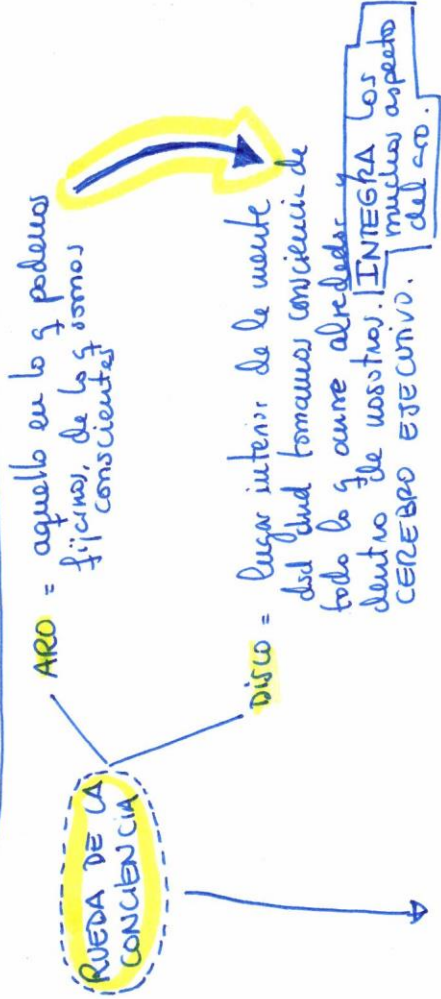 RUEDA DE LA
CONCIENCIA
ARO = aquello en lo q podemos
fijarnos, de lo q somos
conscientes
DISCO = lugar interior de la mente
dsd dnd tomamos consciencia de
todo lo q ocurre alrededor y
dentro de nosotros. INTEGRA los
muchos aspectos
del aro.
CEREBRO EJECUTIVO.